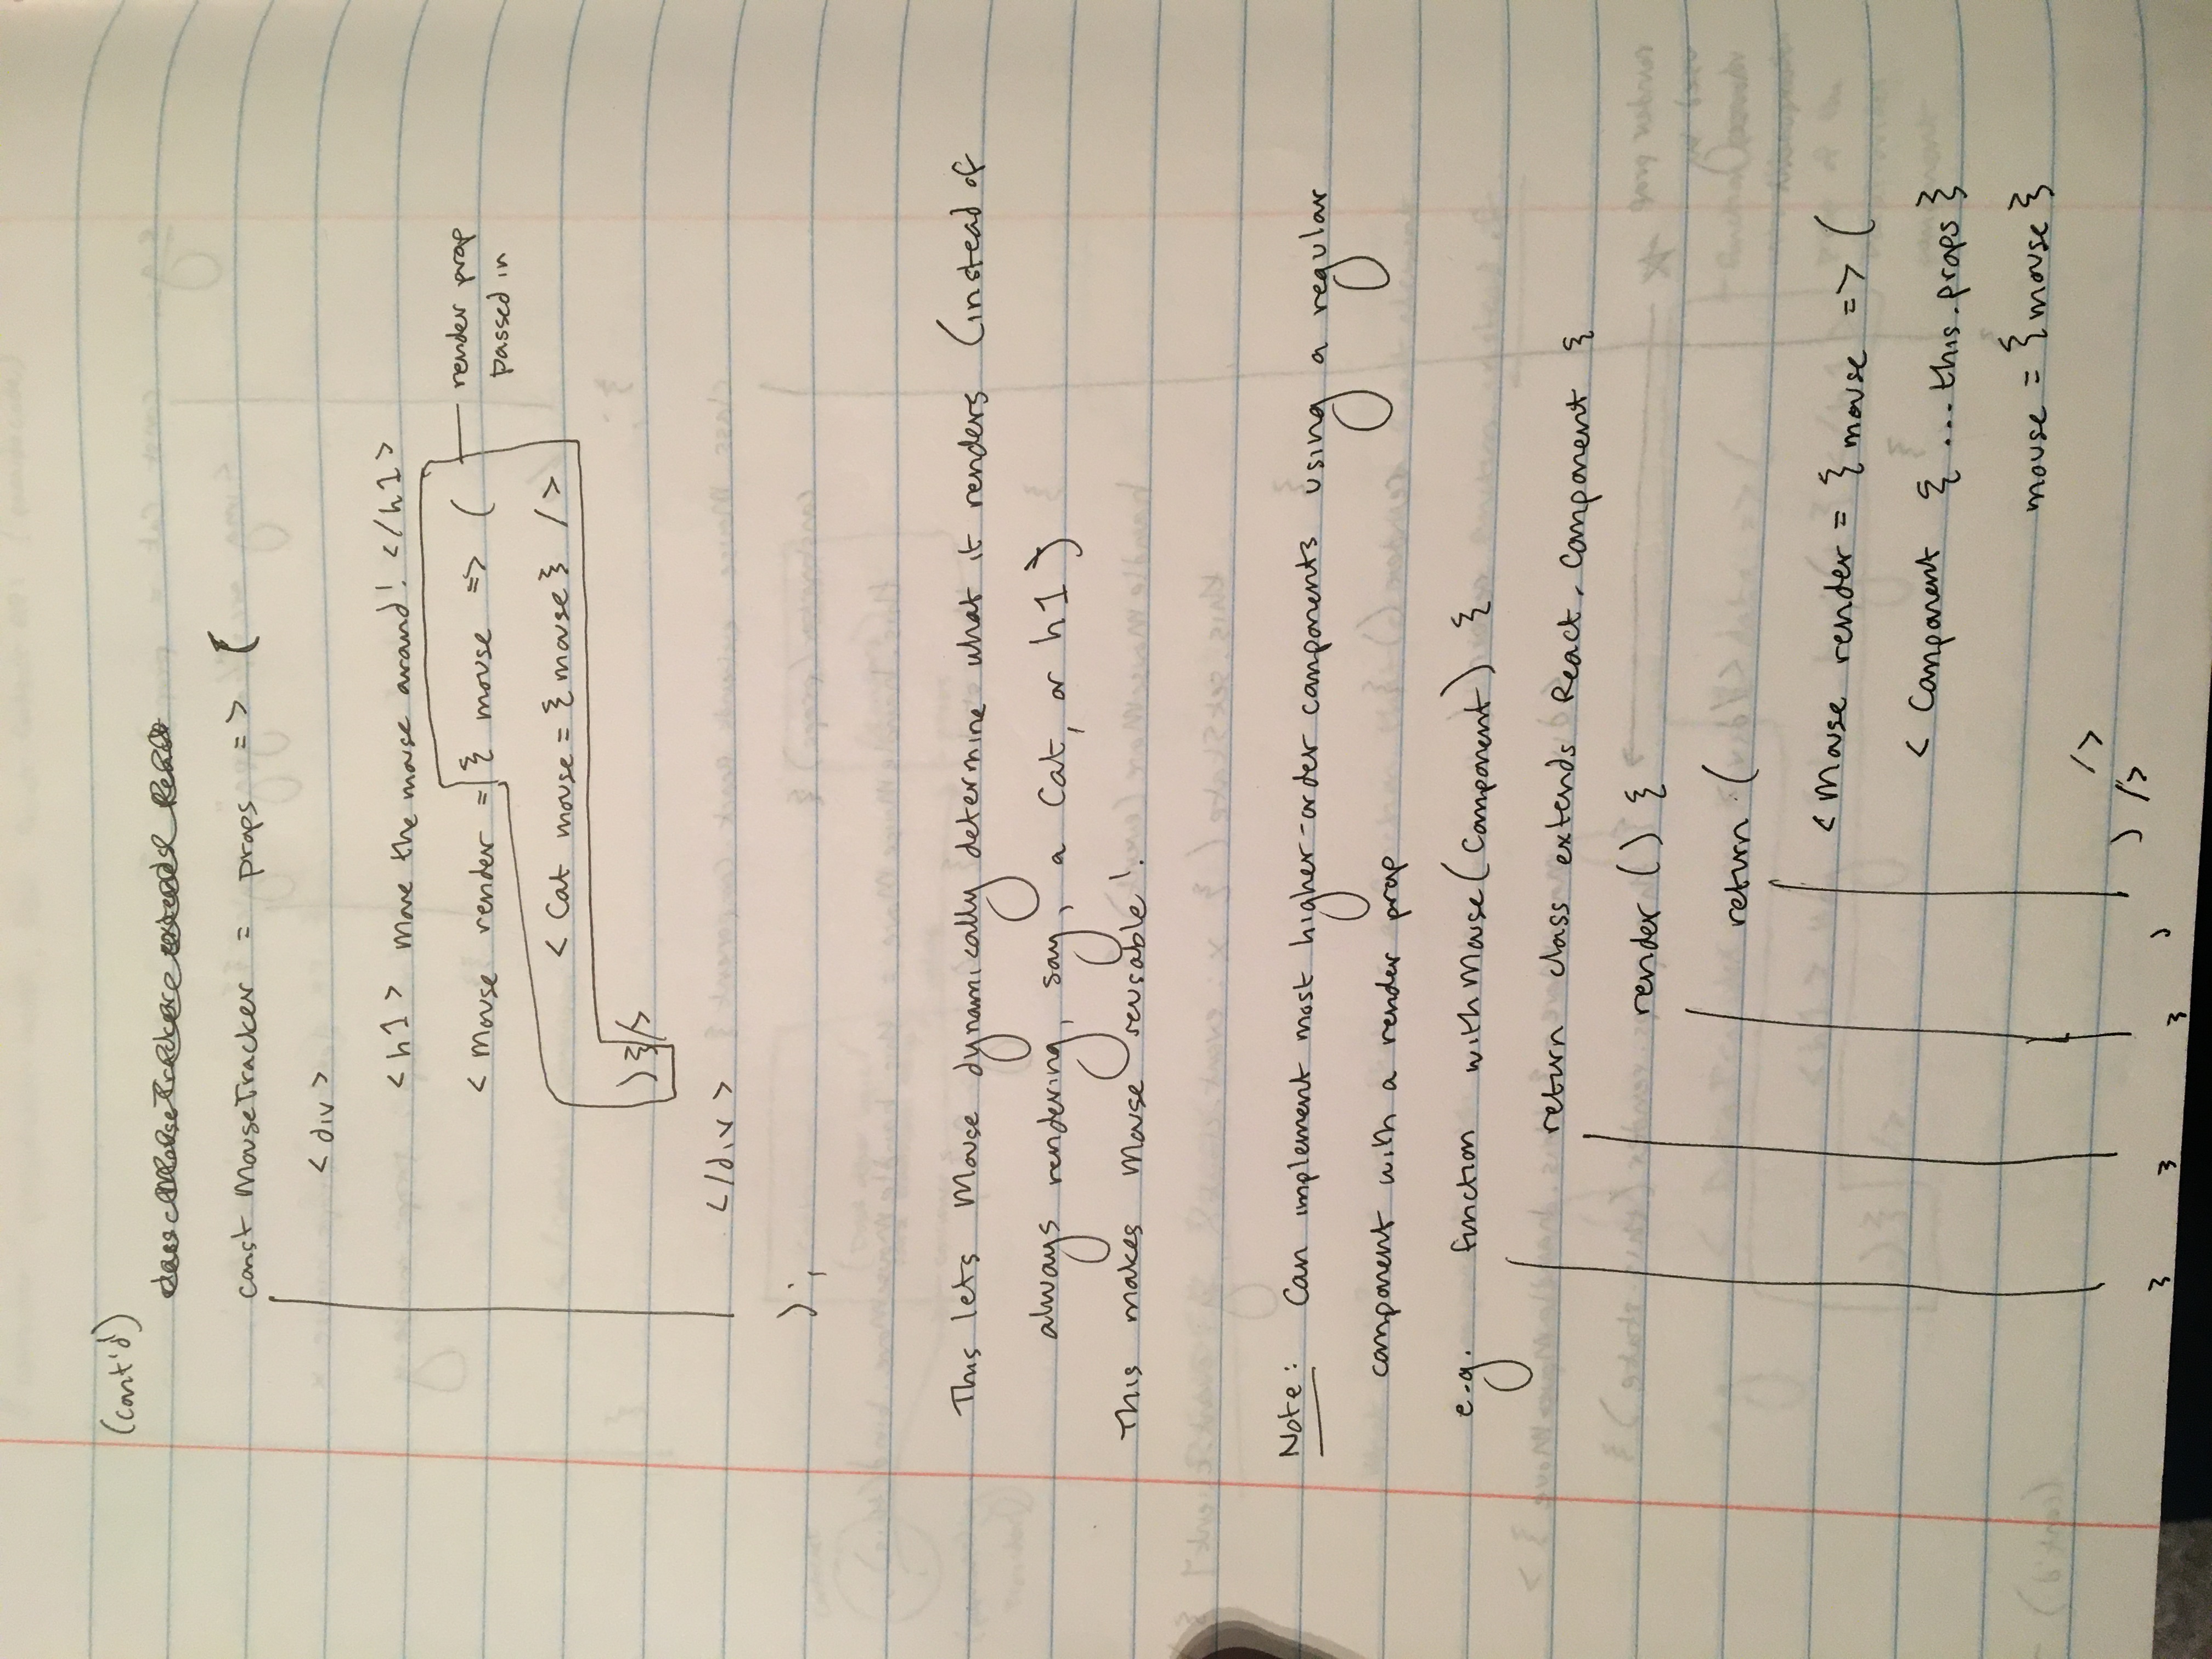 (cont'd)
const MouseTracker = props => (
<div>
<h1> Move the mouse around! </h1>
<Mouse render = { mouse => (
render prop
passed in
<Cat mouse = {mouse} />
)}/>
</div>
);
This lets Mouse dynamically determine what it renders (instead of
always rendering, say, a Cat, or h1)
This makes Mouse reusable!
Note: Can implement most higher-order components using a regular
component with a render prop
e.g. function withMouse(Component) {
return class extends React.Component {
render () {
return (
<Mouse render = {mouse => (
<Component {...this.props}
mouse = {mouse}
/>
) />
} } } )